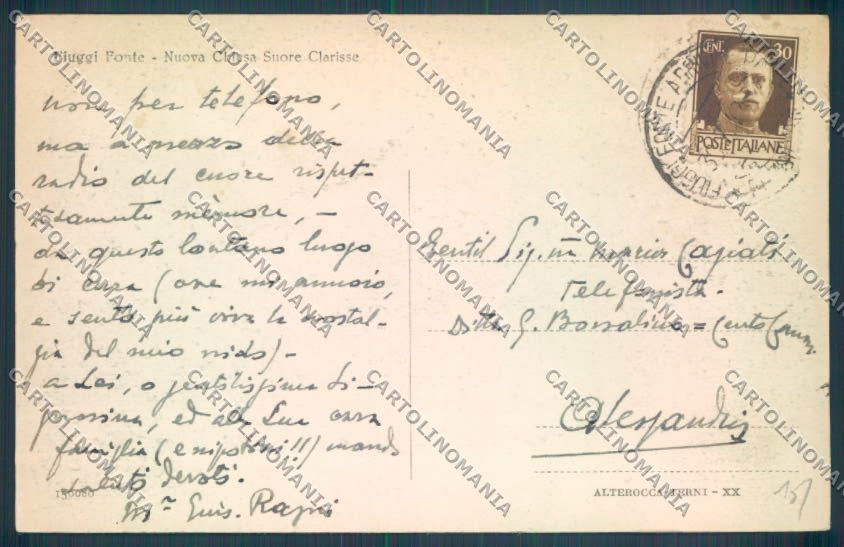 Fiuggi Fonte - Nuova Chiesa Suore Clarisse
non per telefono,
ma a mezzo della
radio del cuore rispet-
tosamente memore, -
da questo lontano luogo
di cura (ove mi annoio,
e sento più viva la nostal-
gia del mio nido) -
a Lei, o gentilissima Si-
gnorina, ed alla Sua cara
famiglia (e nipotini!!) mando
saluti devoti.
CENT. 30
POSTE ITALIANE
FIUGGI
Gentil Sig.na Maria
Telefonista.
Ditta G. Borsalino =
Alessandria
150080
ALTEROCCA-TERNI - XX
CARTOLINOMANIA